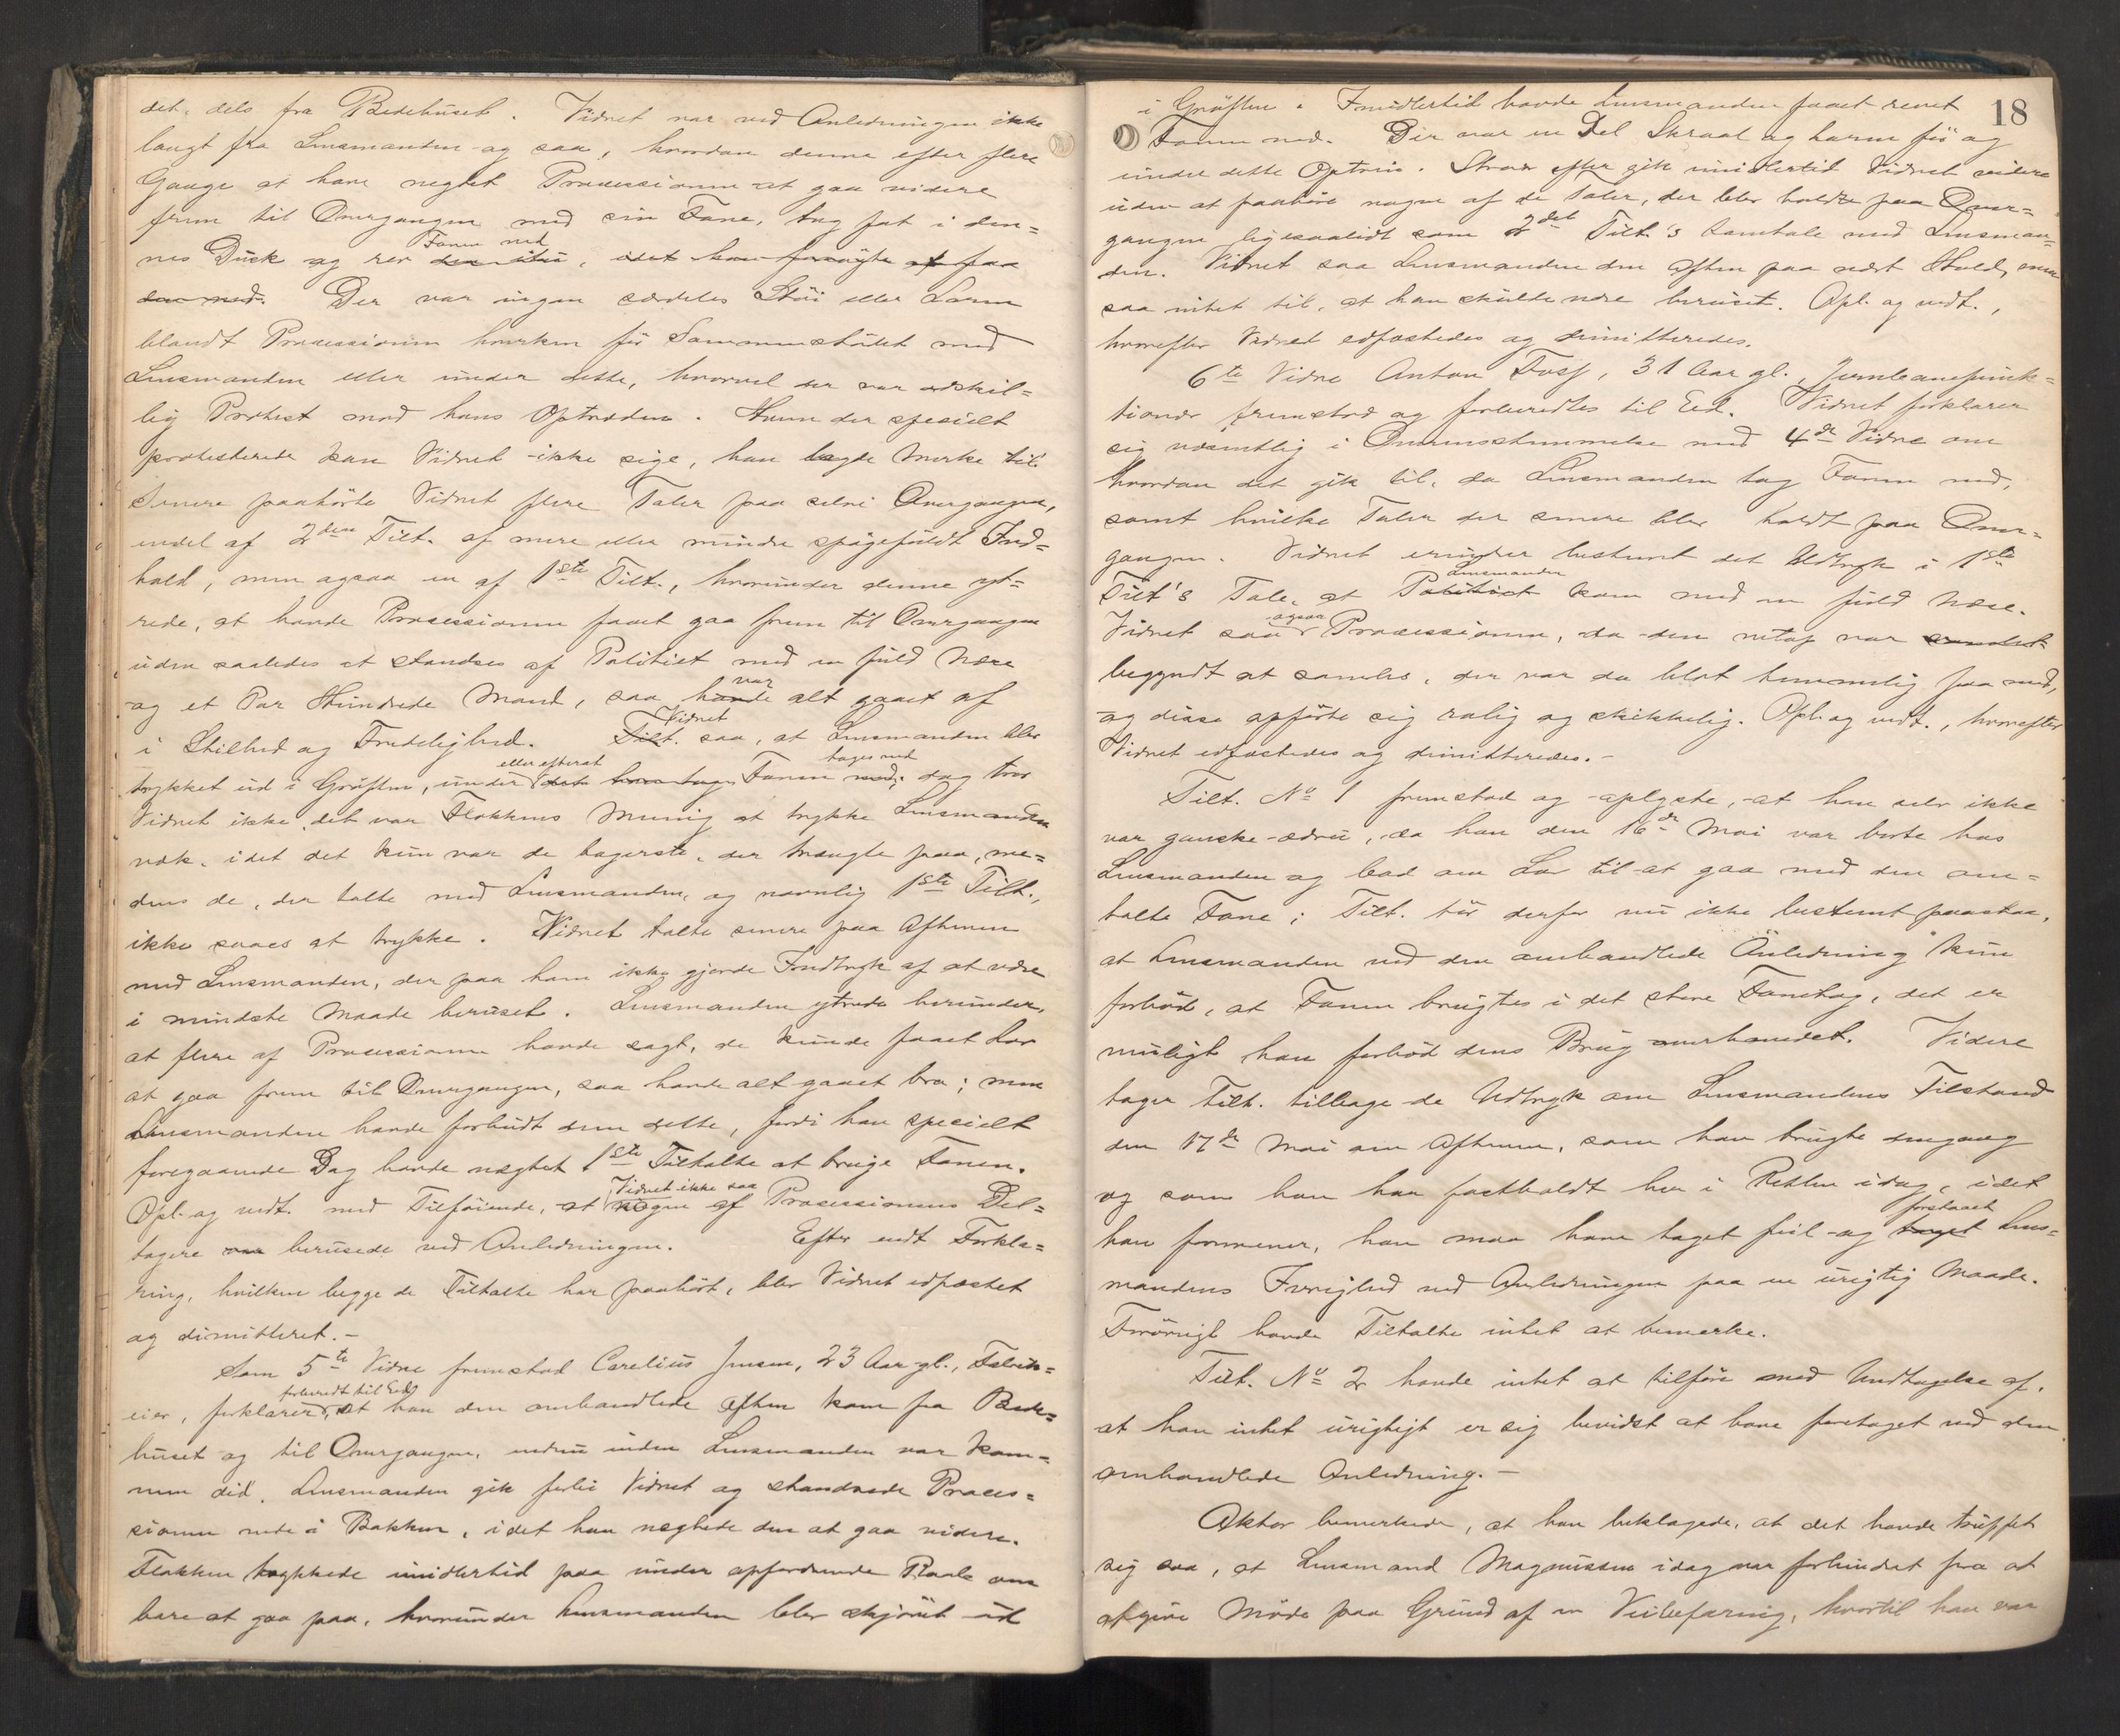 det, dels fra Bedehuset. Vidnet var ved Anledningen ikke
langt fra Lensmanden og saa, hvordan denne efter flere
Gange at have negtet Processionen at gaa videre
frem til Overgangen med sin Fane, tog fat i den-
nes Duk og rev Fanen ned, idet han forsøgte at faa
den ned. Der var ingen særdeles Støi eller Larm
blandt Processionen hverken før Sammenstødet med
Lensmanden eller under dette, hvorvel der var adskil-
lig Protest mod hans Optræden. Hvem der specielt
protesterede kan Vidnet ikke sige, han lagde Merke til.
Senere paahørte Vidnet flere Taler paa selve Overgangen,
endel af 2den Tilt. af mere eller mindre spøgefuldt Ind-
hold, men ogsaa en af 1ste Tilt., hvorunder denne yt-
rede, at havde Processionen faaet gaa frem til Overgangen
uden saaledes at standses af Politiet med en fuld Næse
og et Par Hundrede Mand, saa havde var alt gaaet af
i Stilhed og Fredelighed. Tilt. Vidnet saa, at Lensmanden blev
trykket ud i Grøften, under eller efterat det han tog Fanen ned, tages ned dog tror
Vidnet ikke, det var Flokkens Mening at trykke Lensmanden
væk, idet det kun var de bagerste, der trængte paa, me-
dens de, der talte med Lensmanden, og navnlig 1ste Tilt.,
ikke saaes at trykke. Vidnet talte senere paa Aftenen
med Lensmanden, der paa ham ikke gjorde Indtryk af at være
i mindste Maade beruset. Lensmanden ytrede herunder,
at flere af Processionen havde sagt, de kunde faaet Lov
at gaa frem til Overgangen, saa havde alt gaaet bra; men
Lensmanden havde forbudt dem dette, fordi han specielt
foregaaende Dag havde nægtet 1ste Tiltalte at bruge Fanen.
Opl. og vedt. med Tilføiende, at Vidnet ikke saa nogen af Processionens Del-
tagere var berusede ved Anledningen. Efter endt Forkla-
ring, hvilken begge de Tiltalte har paahørt, blev Vidnet edfæstet
og dimitteret.-
Som 5te Vidne fremstod Carelius Jensen, 23 Aar gl.,
eier, forklarer, forberedt til Ed, at han den omhandlede Aften kom fra Bede-
huset og til Overgangen, endnu inden Lensmanden var kom-
men did. Lensmanden gik forbi Vidnet og standsede Proces-
sionen nede i Bakken, idet han negtede den at gaa videre.
Flokken trykkede imidlertid paa under opfordrende Raab om
bare at gaa paa, hvorunder Lensmanden blev skjøvet ud
18
i Grøften. Imidlertid havde Lensmanden faaet revet
Fanen ned. Der var en Del Skraal og Larm før og
under dette Optrin. Strax efter gik imidlertid Vidnet videre
uden at paahøre nogen af de Taler, der blev holdt paa Over-
gangen ligesaalidt som 2det Tilt.'s Samtale med Lensman-
den. Vidnet saa Lensmanden den Aften paa nært Hold, men
saa intet til, at han skulde være beruset. Opl. og vedt.,
hvorefter Vidnet edfæstedes og dimitteredes.
6te Vidne Anton Foss, 31 Aar gl., Jernbanefunk-
tionær fremstod og forberedtes til Ed. Vidnet forklarer
sig væsentlig i Overensstemmelse med 4de Vidne om
hvordan det gik til, da Lensmanden tog Fanen ned,
samt hvilke Taler der senere blev holdt paa Over-
gangen. Vidnet erindrer bestemt det Udtryk i 1ste
Tilt's Tale, at Politiet Lensmanden kom med en fuld Næse.
Vidnet saa ogsaa Processionen, da den netop var samlet
begyndt at samles, der var da blot femmelig faa med,
og disse opførte sig rolig og skikkelig. Opl. og vedt., hvorefter
Vidnet edfæstedes og dimitteredes.-
Tilt. No 1 fremstod og oplyste, at han selv ikke
var ganske ædru, da han den 16de Mai var borte hos
Lensmanden og bad om Lov til at gaa med den om-
talte Fane; Tilt. tør derfor nu ikke bestemt paastaa,
at Lensmanden ved den omhandlede Anledning kun
forbød, at Fanen brugtes i det store Fanetog, det er
muligt han forbød dens Brug overhovedet. Videre
tager Tilt. tilbage de Udtryk om Lensmandens Tilstand
den 17de Mai om Aftenen, som han brugte dengang
og som han har fastholdt her i Retten idag, idet
han formener, han maa have taget feil og taget forstaaet Lens-
mandens Ivrighed ved Anledningen paa en urigtig Maade.
Forøvrigt havde Tiltalte intet at bemerke.
Tilt. No 2 havde intet at tilføre med Undtagelse af,
at han intet urigtigt er sig bevidst at have foretaget ved den
omhandlede Anledning.-
Aktor bemerkede, at han beklagede, at det havde truffet
sig saa, at Lensmand Magnussen idag var forhindret fra at
afgive Møde paa Grund af en Veibefaring, hvortil han var